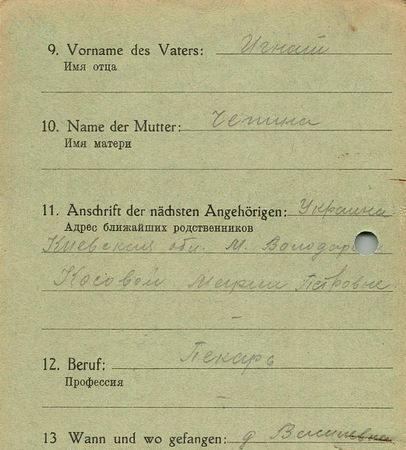 9. Vorname des Vaters: Игнат
Имя отца
10. Name der Mutter: Чепина
Имя матери
11. Anschrift der nächsten Angehörigen: Украина
Адрес ближайших родственников
Киевская обл. М. Володар
Косовой Марии Петровне
12. Beruf: Пекарь
Профессия
13 Wann und wo gefangen: д